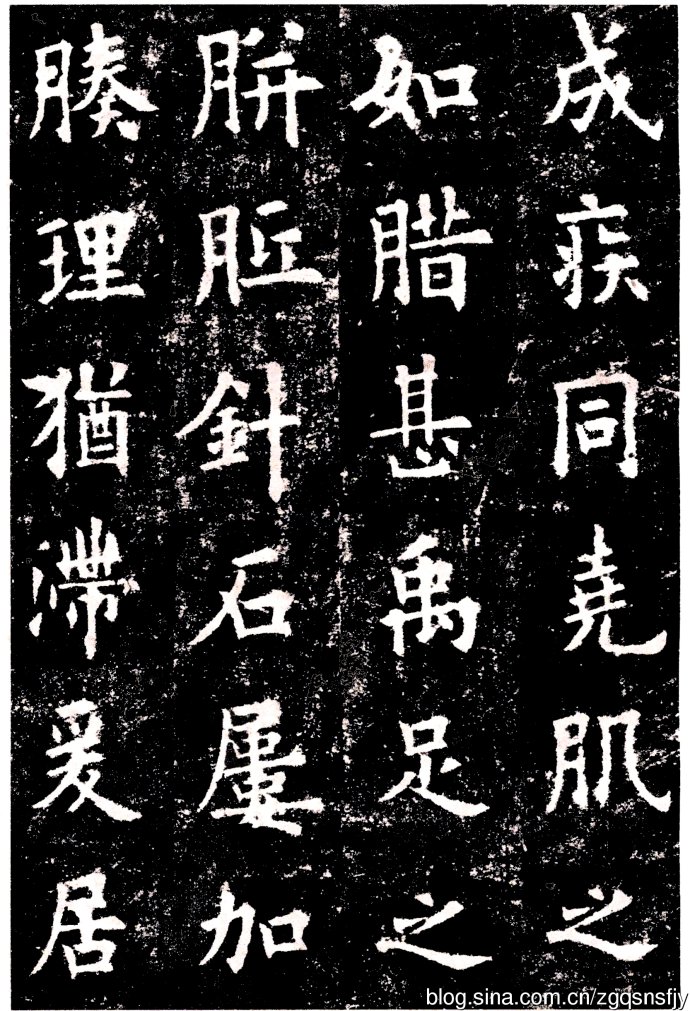 成疾同堯肌之
如腊甚禹足之
胼胝針石屢加
腠理猶滯爰居
blog.sina.com.cn/zgqsnsfjy